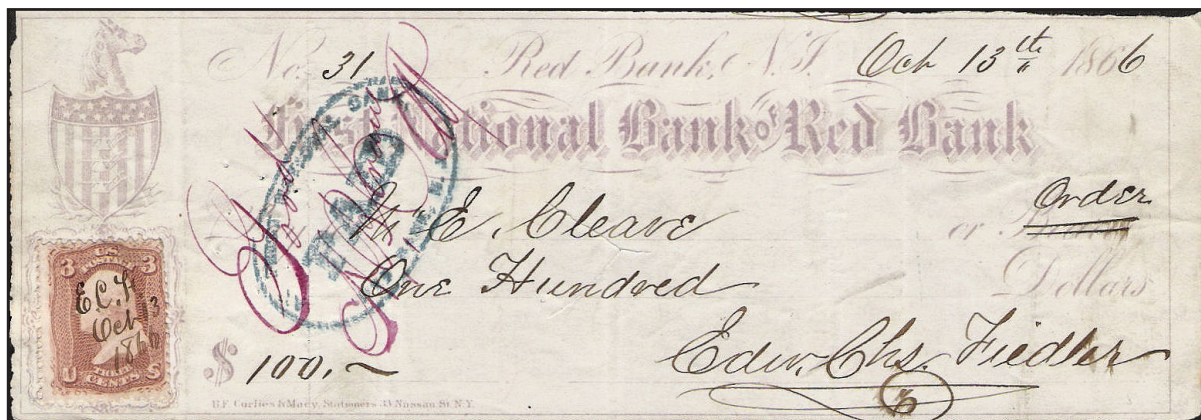 No. 31 Red Bank, N.J. Oct 13th 1866
First National Bank of Red Bank
Wm E. Cleave or Order
One Hundred Dollars
$ 100.~
Edw. Chs. Fiedler
PAID
3 3
E.C.F.
Oct 13
1866
U S
CENTS
B.F. Corlies & Macy, Stationers 33 Nassau St. N.Y.